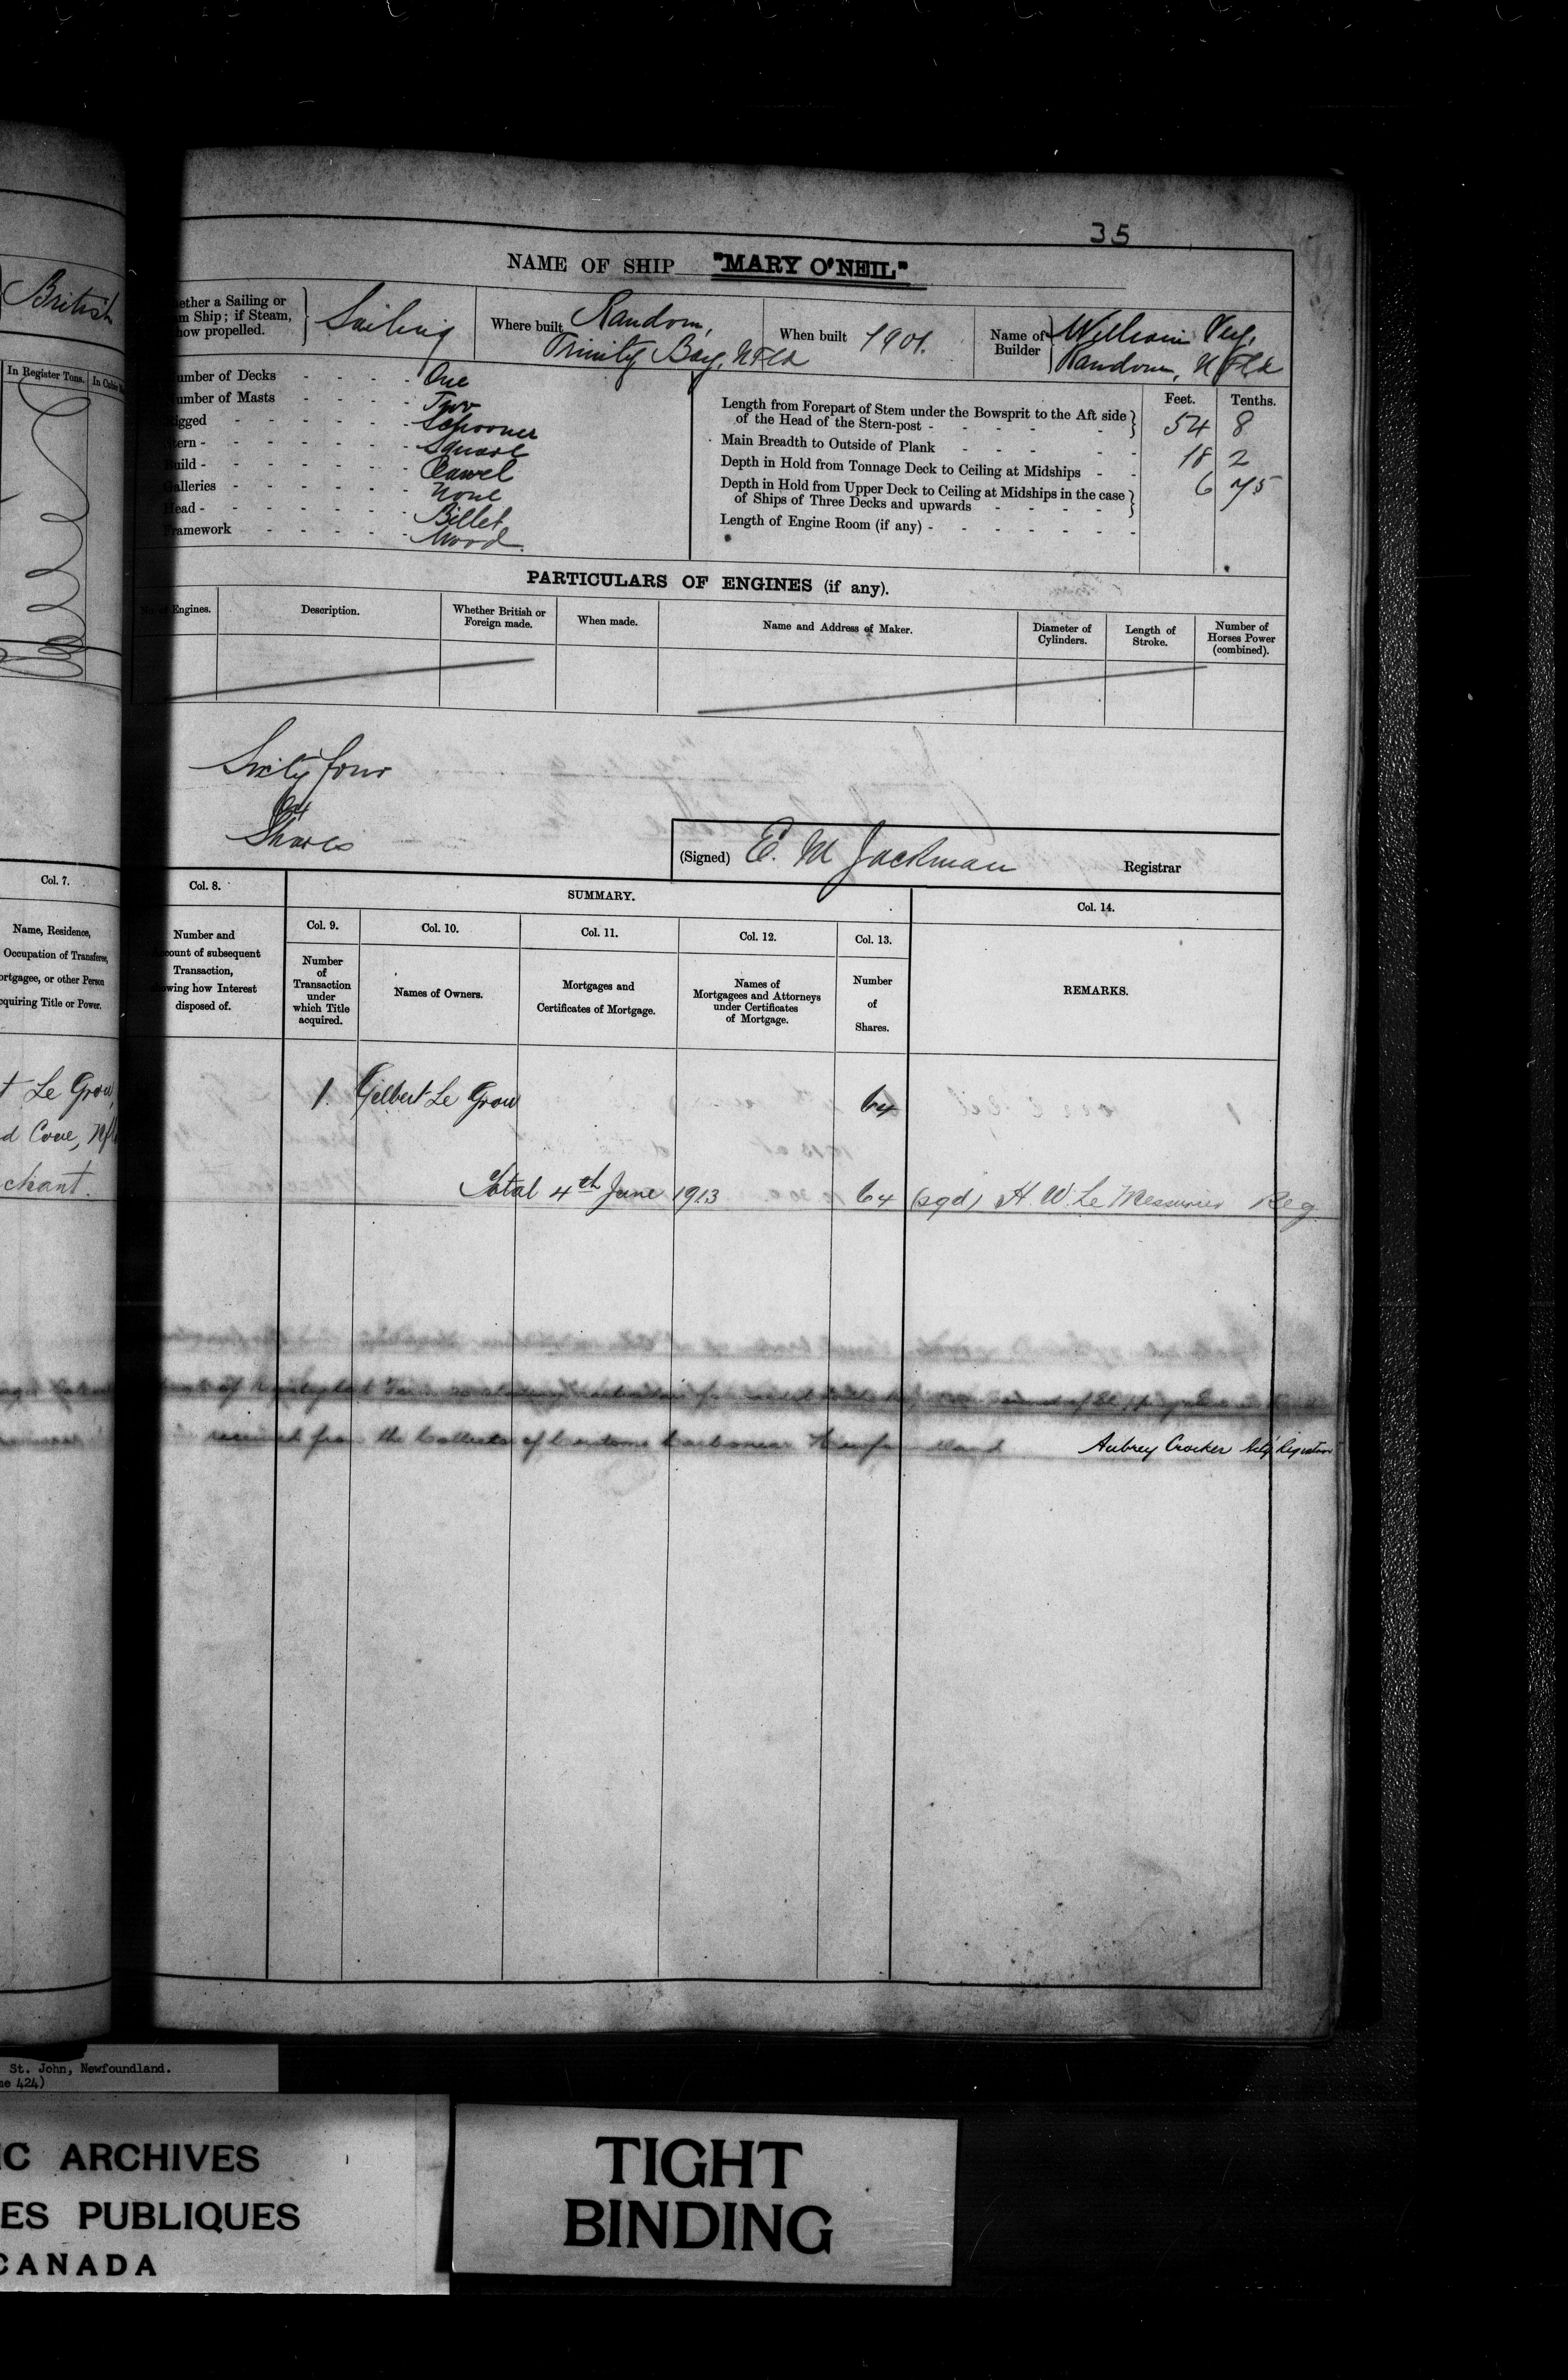 35
NAME OF SHIP "MARY O'NEIL"
British
ether a Sailing or
am Ship; if Steam,
how propelled.
Sailing
Where built Random,
Trinity Bay, Nfld
When built 1901.
Name of
Builder
William
Random, Nfld
In Register Tons.
umber of Decks - - - - One
umber of Masts - - - - Two
igged - - - - - - Schooner
tern - - - - - - - Square
Build - - - - - - - Carvel
Galleries - - - - - - None
Head - - - - - - - Billet
ramework - - - - - Wood.
Feet. Tenths.
Length from Forepart of Stem under the Bowsprit to the Aft side
of the Head of the Stern-post - - - - - 54 8
Main Breadth to Outside of Plank - - - - 18 2
Depth in Hold from Tonnage Deck to Ceiling at Midships - - 6 75
Depth in Hold from Upper Deck to Ceiling at Midships in the case
of Ships of Three Decks and upwards - - - -
Length of Engine Room (if any) - - - - - -
PARTICULARS OF ENGINES (if any).
No. of Engines.
Description.
Whether British or
Foreign made.
When made.
Name and Address of Maker.
Diameter of
Cylinders.
Length of
Stroke.
Number of
Horses Power
(combined).
Sixty four
64
Shares
(Signed) E. M Jackman Registrar
Col. 7.
Name, Residence,
Occupation of Transferee,
ortgagee, or other Person
cquiring Title or Power.
Col. 8.
Number and
ount of subsequent
Transaction,
owing how Interest
disposed of.
SUMMARY.
Col. 9.
Number
of
Transaction
under
which Title
acquired.
Col. 10.
Names of Owners.
Col. 11.
Mortgages and
Certificates of Mortgage.
Col. 12.
Names of
Mortgagees and Attorneys
under Certificates
of Mortgage.
Col. 13.
Number
of
Shares.
Col. 14.
REMARKS.
t Le Grow,
d Cove, Nfl
chant.
1. Gilbert Le Grow 64
Total 4th June 1913 64 (sgd) H. W. Le Messurier Reg
received from the Collector of Customs Carbonear Newfoundland Aubrey Crocker Registrar
St. John, Newfoundland.
me 424)
IC ARCHIVES
ES PUBLIQUES
CANADA
TIGHT
BINDING